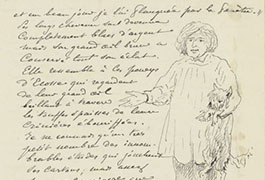 et un beau jour je lui flanquai par la fenêtre.
Ses longs cheveux sont devenus
complètement blancs d'argent
mais son grand œil brun a
conservé tout son éclat.
Elle ressemble à les poneys
d'Ecosse qui regardent
de leur grand œil
brillant à travers
les touffes épaisses de leurs
crinières ébouriffées.
Je ne connais qu'un très
petit nombre des innom-
brables études qui jonchent
ses cartons, mais assez